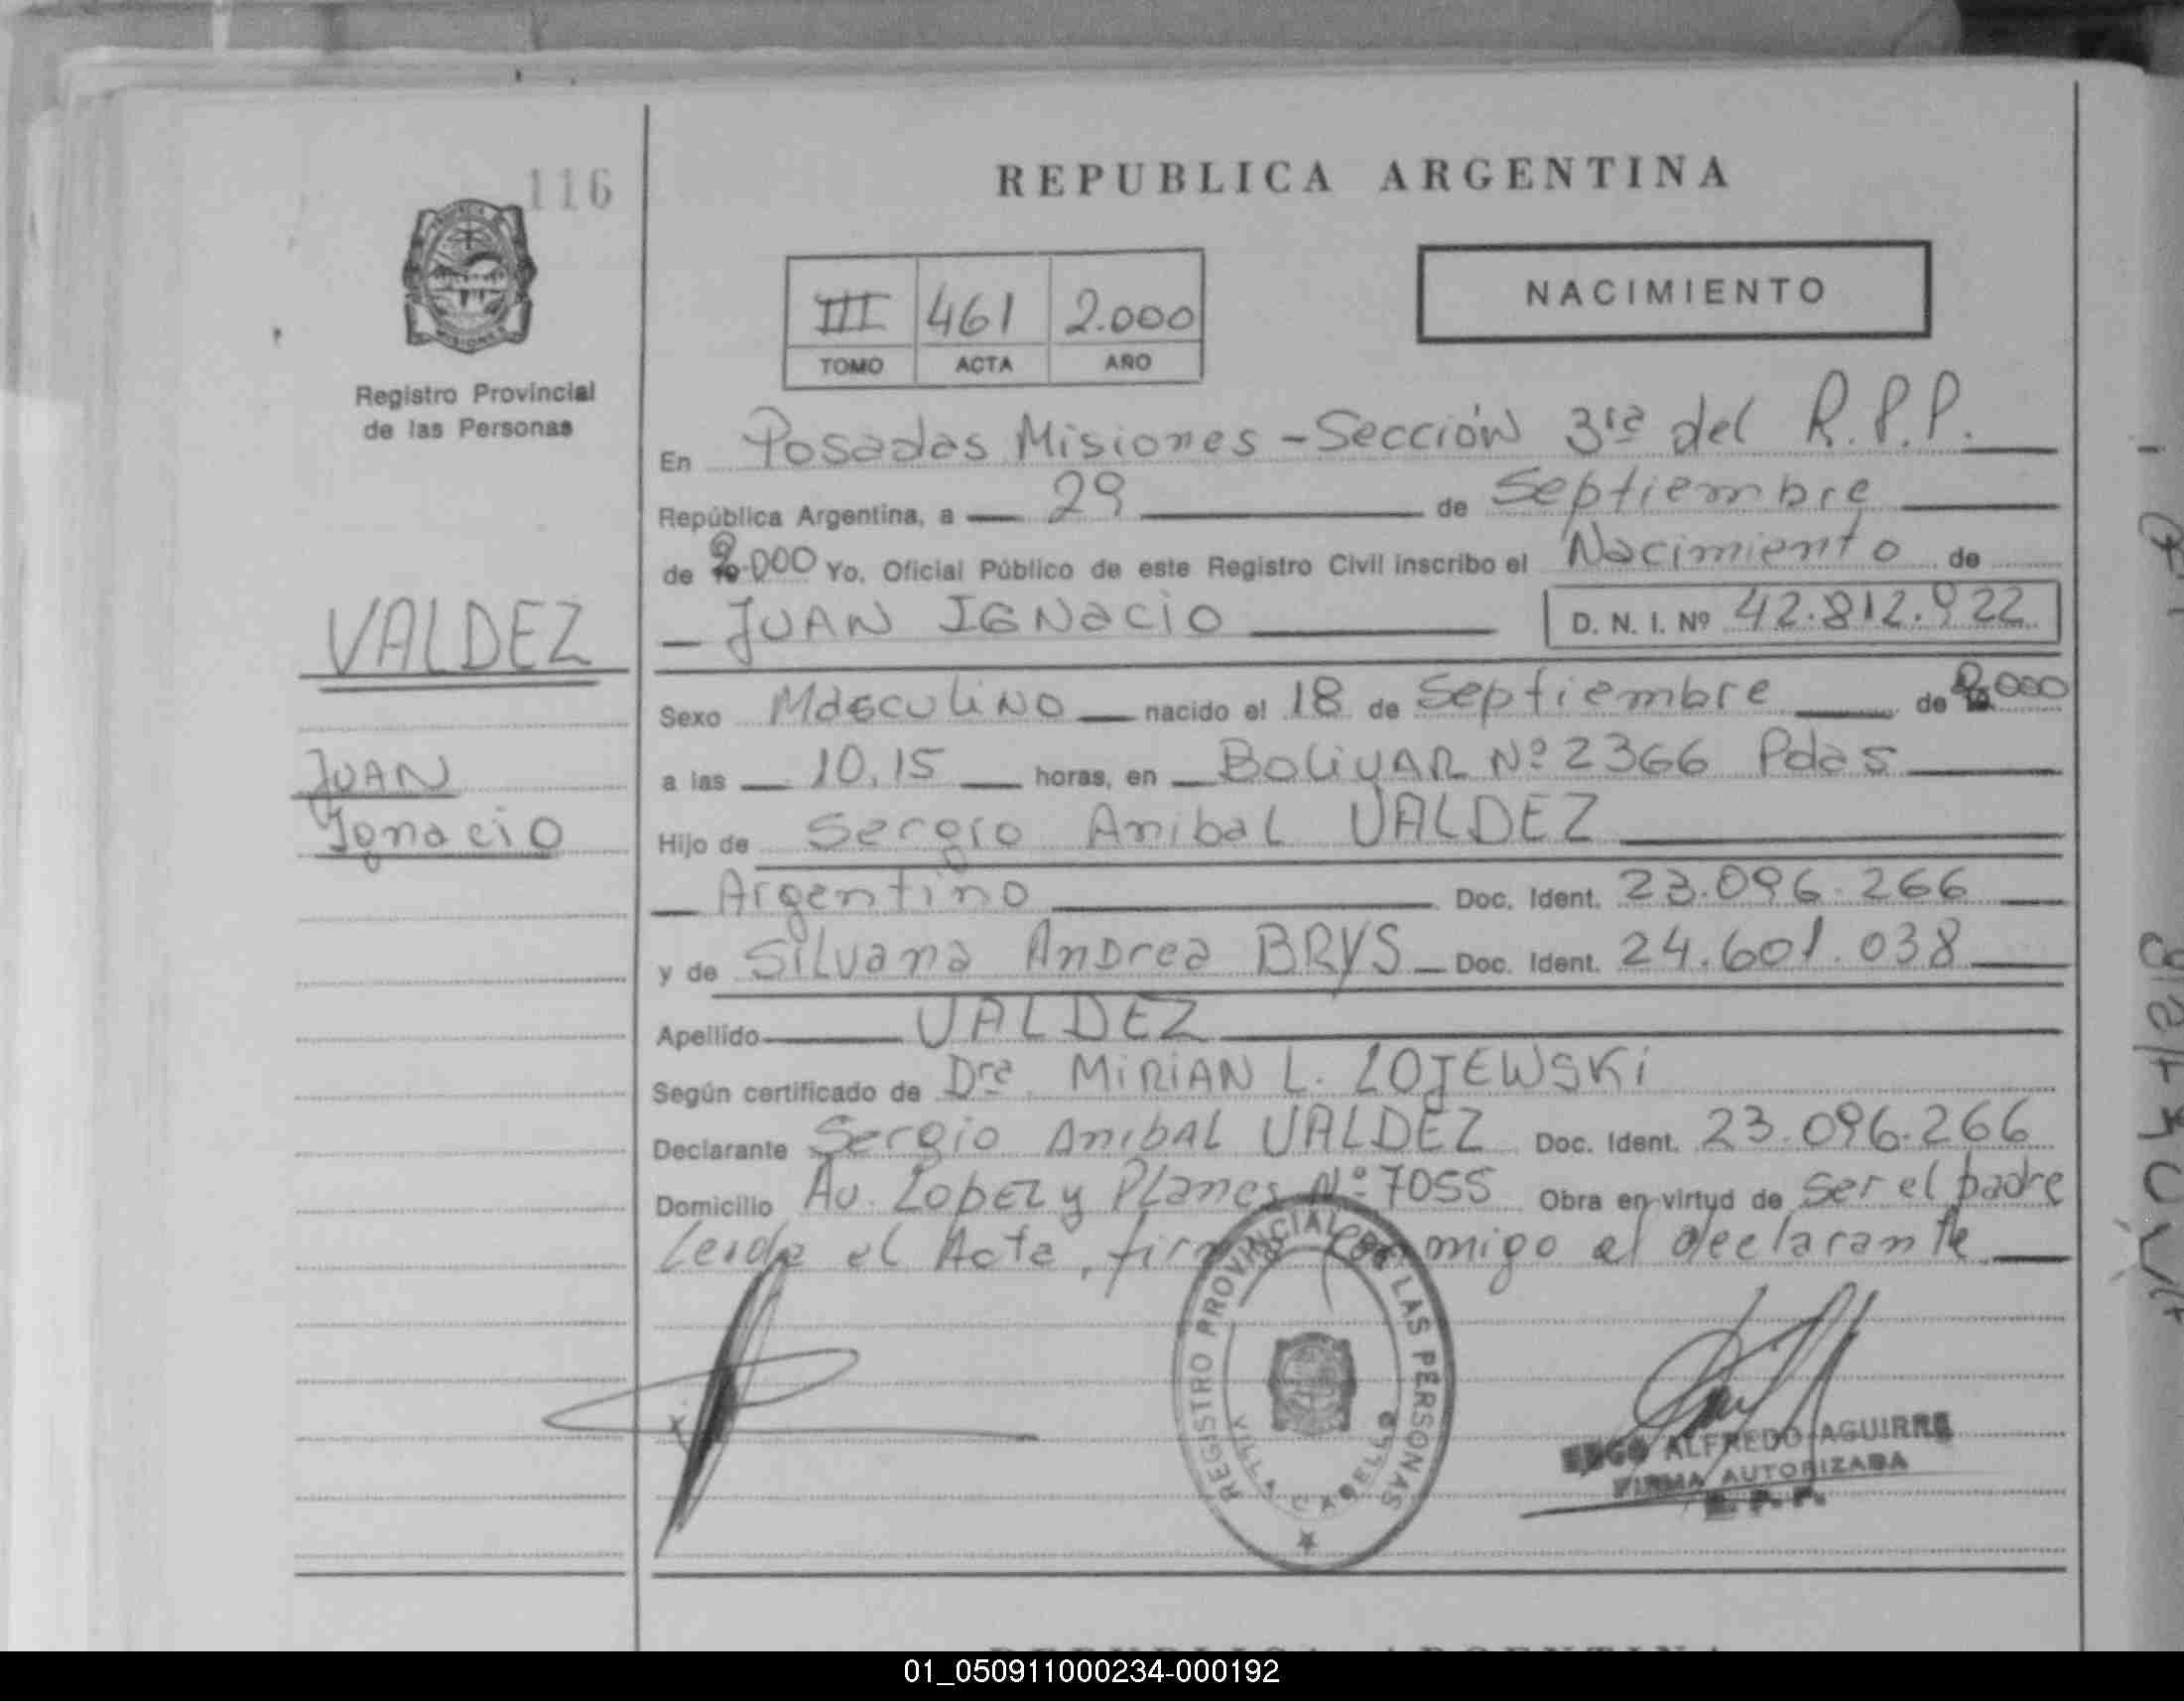 116
REPUBLICA ARGENTINA
III 461 2.000
TOMO ACTA AÑO
NACIMIENTO
Registro Provincial
de las Personas
En Posadas Misiones - Sección 3ra del R.P.P.
República Argentina, a 29 de Septiembre
de 2.000 Yo, Oficial Público de este Registro Civil inscribo el Nacimiento de
JUAN IGNacio D. N. I. Nº 42.812.922
VALDEZ
Sexo Masculino nacido el 18 de Septiembre de 2.000
JUAN
a las 10,15 horas, en BoliVAR Nº 2366 Pdas
Ignacio
Hijo de Sergio Anibal VALDEZ
Argentino Doc. Ident. 23.096.266
y de Silvana Andrea BRYS Doc. Ident. 24.601.038
Apellido VALDEZ
Según certificado de Dra. MiRiAN L. LOJEWSKi
Declarante Sergio AnibAL VALDEZ Doc. Ident. 23.096.266
Domicilio Av. Lopez y Planes Nº 7055 Obra en virtud de ser el padre
Leida el Acta, firma conmigo el declarante
REGISTRO PROVINCIAL DE LAS PERSONAS
VILLA CABELLO
ALFREDO AGUIRRE
FIRMA AUTORIZADA
R. P. P.
REPUBLICA ARGENTINA
01_050911000234-000192